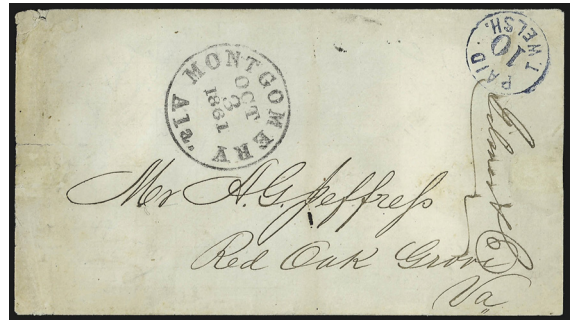 MONTGOMERY Ala.
OCT
3
1861
PAID
10
W.I. WELSH.
Gilmer & Co
Mr A. G. Jeffress
Red Oak Grove
Va